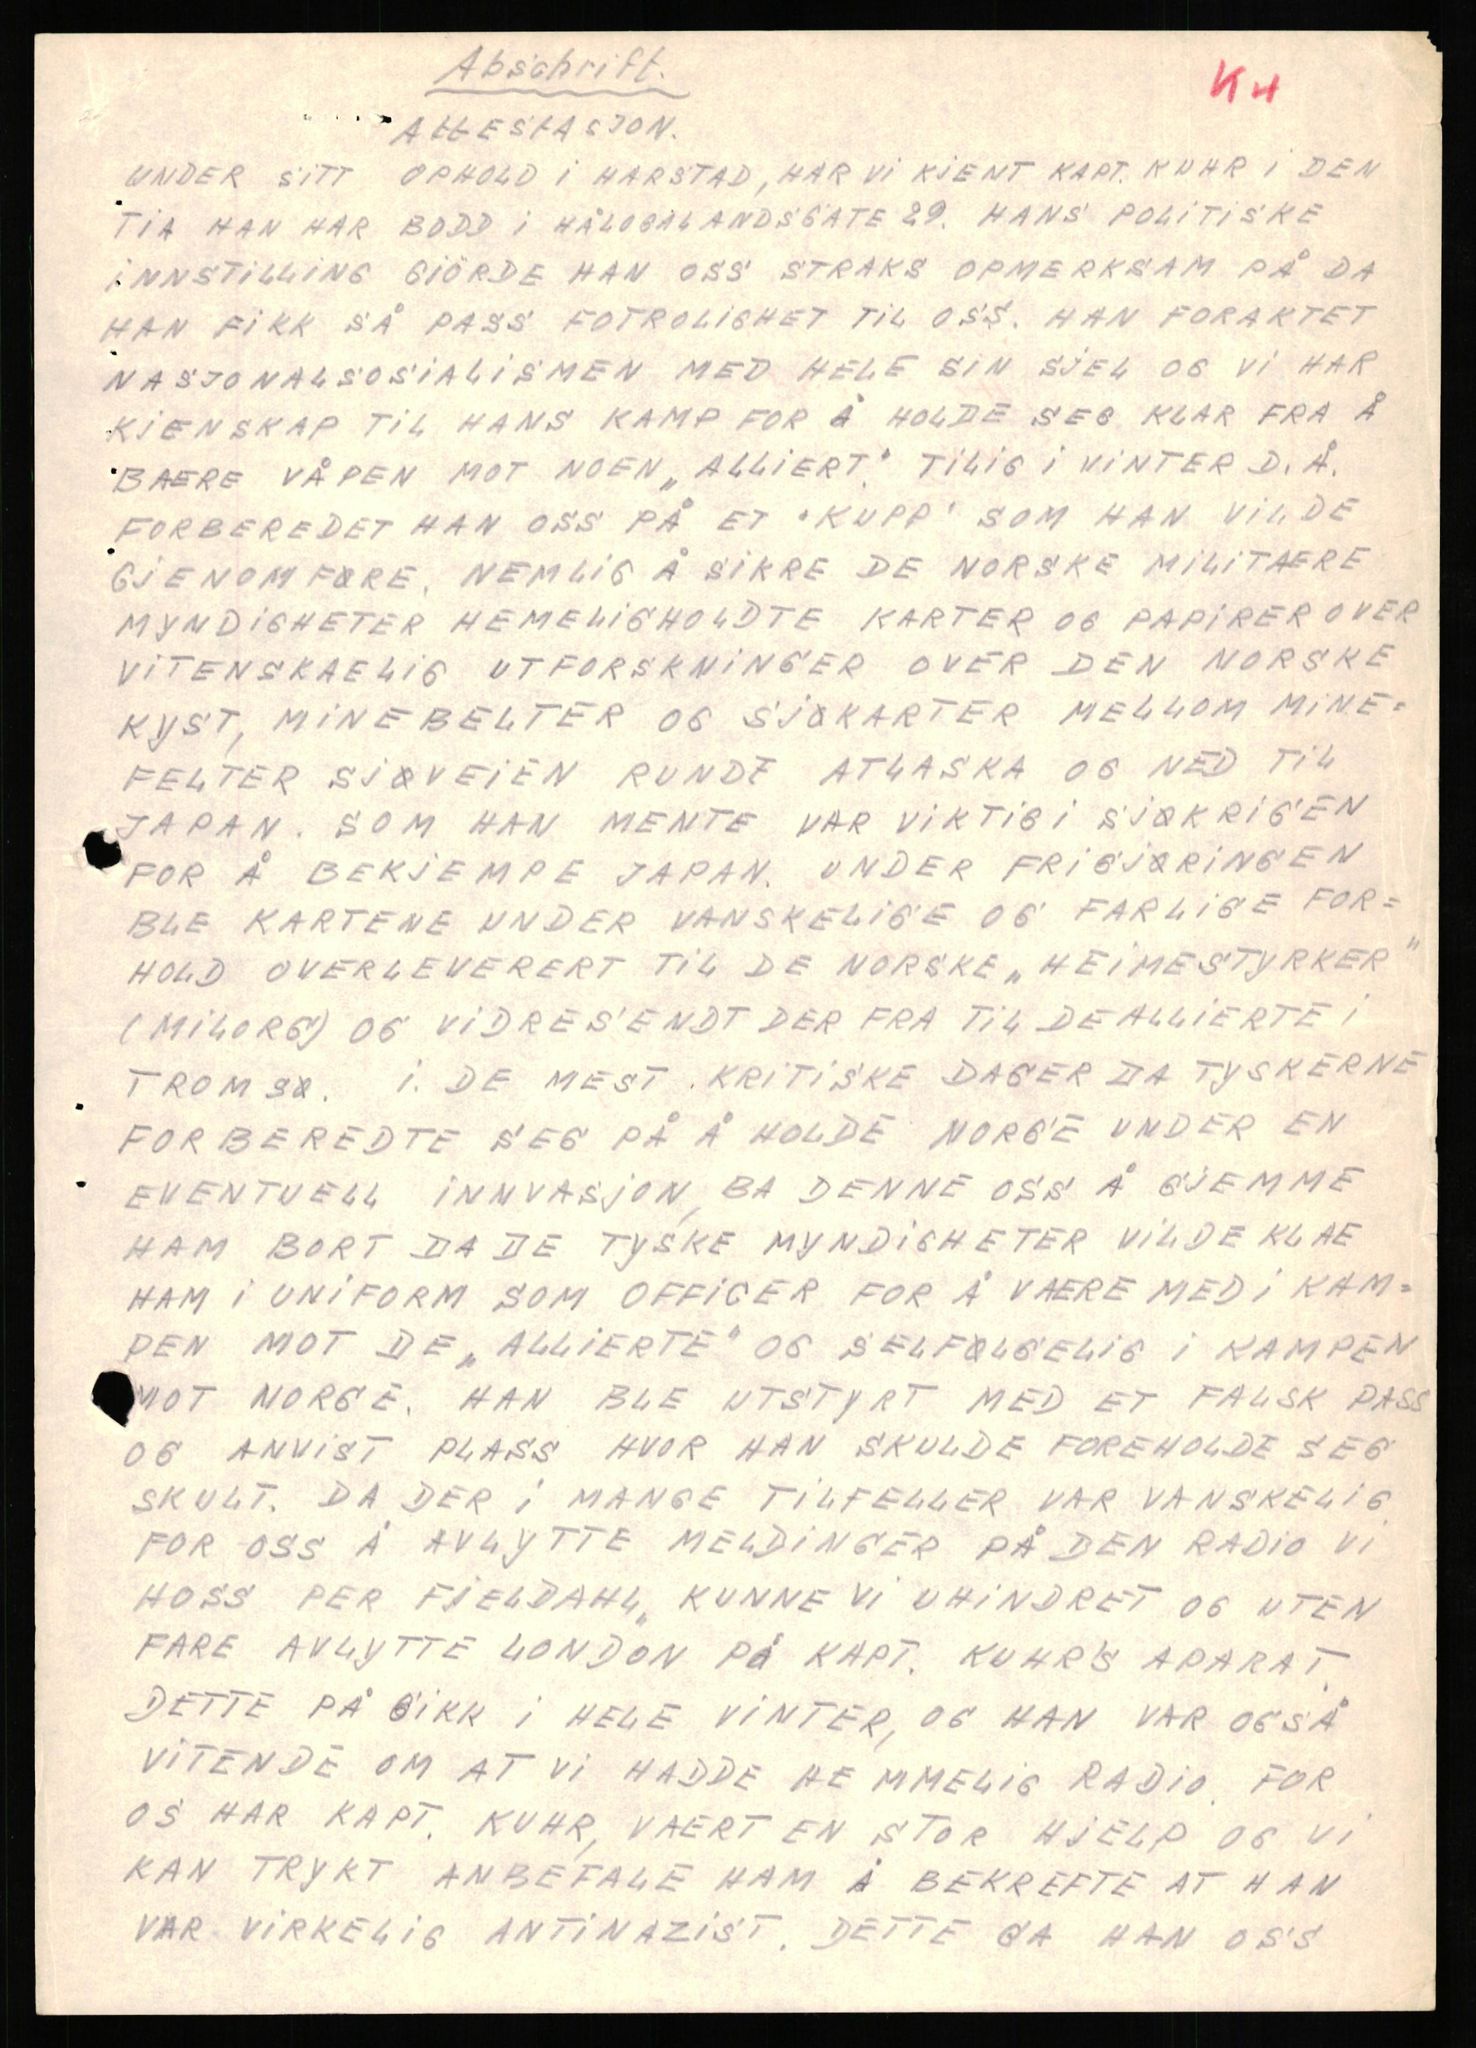 Abschrift.
K4
ATTESTASJON.
UNDER SITT OPHOLD I HARSTAD, HAR VI KJENT KAPT. KUHR I DEN
TIA HAN HAR BODD I HÅLOGALANDSGATE 29. HANS POLITISKE
INNSTILLING GJÖRDE HAN OSS STRAKS OPMERKSAM PÅ DA
HAN FIKK SÅ PASS FOTROLIGHET TIL OSS. HAN FORAKTET
NASJONALSOSIALISMEN MED HELE SIN SJEL OG VI HAR
KJENSKAP TIL HANS KAMP FOR Å HOLDE SEG KLAR FRA Å
BAERE VÅPEN MOT NOEN „ALLIERT." TILIG I VINTER D.Å.
FORBEREDET HAN OSS PÅ ET "KUPP" SOM HAN VILDE
GJENOMFØRE. NEMLIG Å SIKRE DE NORSKE MILITÆRE
MYNDIGHETER HEMELIGHOLDTE KARTER OG PAPIRER OVER
VITENSKAELIG UTFORSKNINGER OVER DEN NORSKE
KYST, MINEBELTER OG SJØKARTER MELLOM MINE=
FELTER SJØVEIEN RUNDT ATLASKA OG NED TIL
JAPAN. SOM HAN MENTE VAR VIKTIG I SJØKRIGEN
FOR Å BEKJEMPE JAPAN. UNDER FRIGJØRINGEN
BLE KARTENE UNDER VANSKELIGE OG FARLIGE FOR=
HOLD OVERLEVERERT TIL DE NORSKE „HEIMESTYRKER"
(MILORG) OG VIDRESENDT DER FRA TIL DE ALLIERTE I
TROMSØ. I. DE MEST KRITISKE DAGER DA TYSKERNE
FORBEREDTE SEG PÅ Å HOLDE NORGE UNDER EN
EVENTUELL INNVASJON, BA DENNE OSS Å GJEMME
HAM BORT DA DE TYSKE MYNDIGHETER VILDE KLAE
HAM I UNIFORM SOM OFFICER FOR Å VÆRE MED I KAM=
PEN MOT DE „ALLIERTE" OG SELFØLGELIG I KAMPEN
MOT NORGE. HAN BLE UTSTYRT MED ET FALSK PASS
OG ANVIST PLASS HVOR HAN SKULDE FOREHOLDE SEG
SKULT. DA DER I MANGE TILFELLER VAR VANSKELIG
FOR OSS Å AVLYTTE MELDINGER PÅ DEN RADIO VI
HOSS PER FJELDAHL, KUNNE VI UHINDRET OG UTEN
FARE AVLYTTE LONDON PÅ KAPT. KUHR'S APARAT.
DETTE PÅ GIKK I HELE VINTER, OG HAN VAR OGSÅ
VITENDE OM AT VI HADDE HEMMELIG RADIO. FOR
OS HAR KAPT. KUHR, VAERT EN STOR HJELP OG VI
KAN TRYKT ANBEFALE HAM Å BEKREFTE AT HAN
VAR VIRKELIG ANTINAZIST. DETTE GA HAN OSS